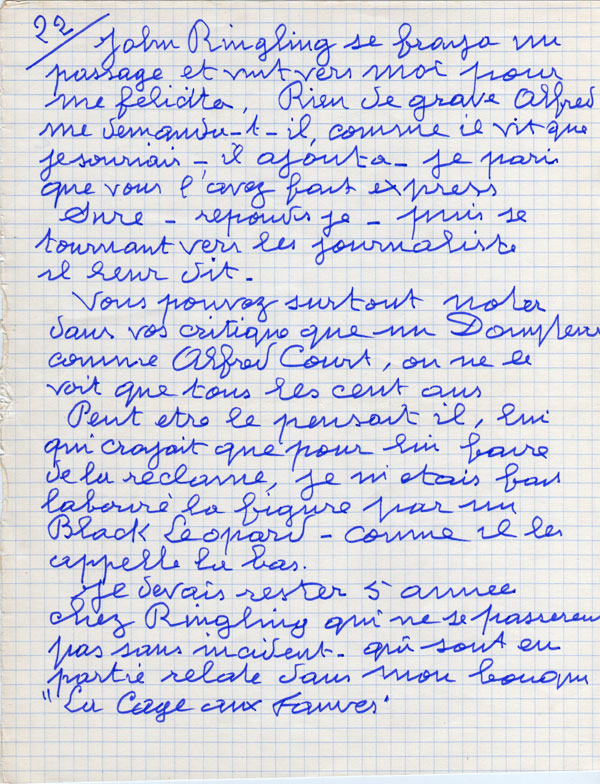 22
John Ringling se fraya un
passage et vint vers moi pour
me felicite, Rien de grave Alfred
me demanda-t-il, comme il vit que
je souriais - il ajouta - je pari
que vous l'avez fait express
Sure - repondis je - puis se
tournant vers les journaliste
il leur dit -
Vous pouvez surtout noter
dans vos critique que un Dompteur
comme Alfred Court, on ne le
voit que tous les cent ans
Peut etre le pensait il, lui
qui croyait que pour lui faire
de la réclame, je m'etais fait
labouré la figure par un
Black Leopard - comme il les
appelle la bas.
Je devais rester 5 annee
chez Ringling qui ne se passerent
pas sans incident - qui sont en
partie relate dans mon bouquin
"La Cage aux Fauves"